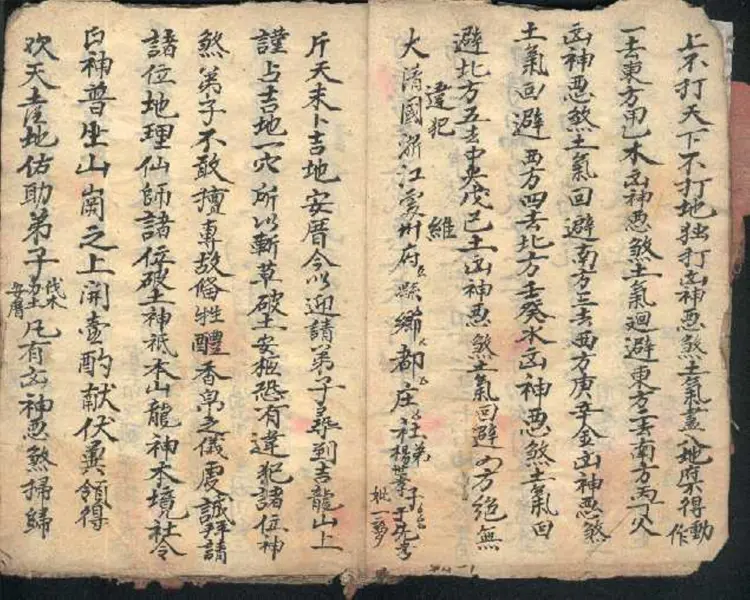 上不打天下不打地独打凶神恶煞土氣盡入地府不得動作
一去東方甲乙木凶神恶煞土氣廻避東方二去南方丙丁火
凶神恶煞土氣回避南方三去西方庚辛金凶神恶煞
土氣回避西方四去北方壬癸水凶神恶煞土氣回
避北方五去中央戊己土凶神恶煞土氣回避四方絶無
違犯 維
大清國浙江處州府縣鄉都庄社
斤天未卜吉地安厝今以迎請弟子尋到吉龍山上
謹占吉地一穴所以斬草破土安柩恐有違犯諸位神
煞弟子不敢擅專故俻牲醴香帛之儀虔誠拜請
諸位地理仙師諸位破土神祇本山龍神本境社令
白神普坐山崗之上開壺酌献伏冀領得
欢天喜地佑助弟子伐木動土安厝凡有凶神恶煞掃歸